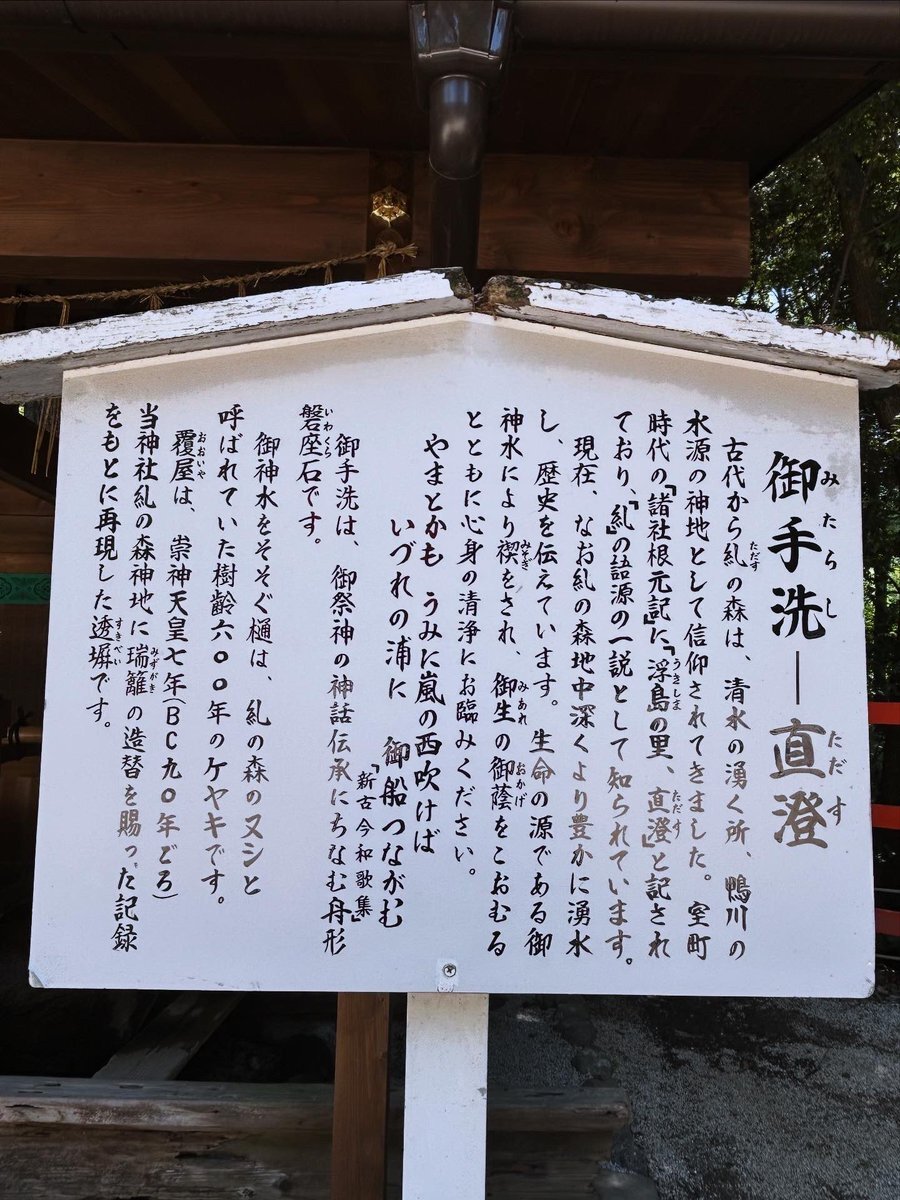 御手洗―直澄
古代から糺の森は、清水の湧く所、鴨川の
水源の神地として信仰されてきました。室町
時代の『諸社根元記』に、『浮島の里、直澄』と記され
ており、『糺』の語源の一説として知られています。
現在、なお糺の森地中深くより豊かに湧水
し、歴史を伝えています。生命の源である御
神水により禊をされ、御生の御蔭をこおむる
とともに心身の清浄にお臨みください。
やまとかも うみに嵐の西吹けば
いづれの浦に 御船つながむ
「新古今和歌集」
御手洗は、御祭神の神話伝承にちなむ舟形
磐座石です。
御神水をそそぐ樋は、糺の森のヌシと
呼ばれていた樹齢六〇〇年のケヤキです。
覆屋は、崇神天皇七年(BC九〇年ごろ)
当神社糺の森神地に瑞籬の造替を賜った記録
をもとに再現した透塀です。